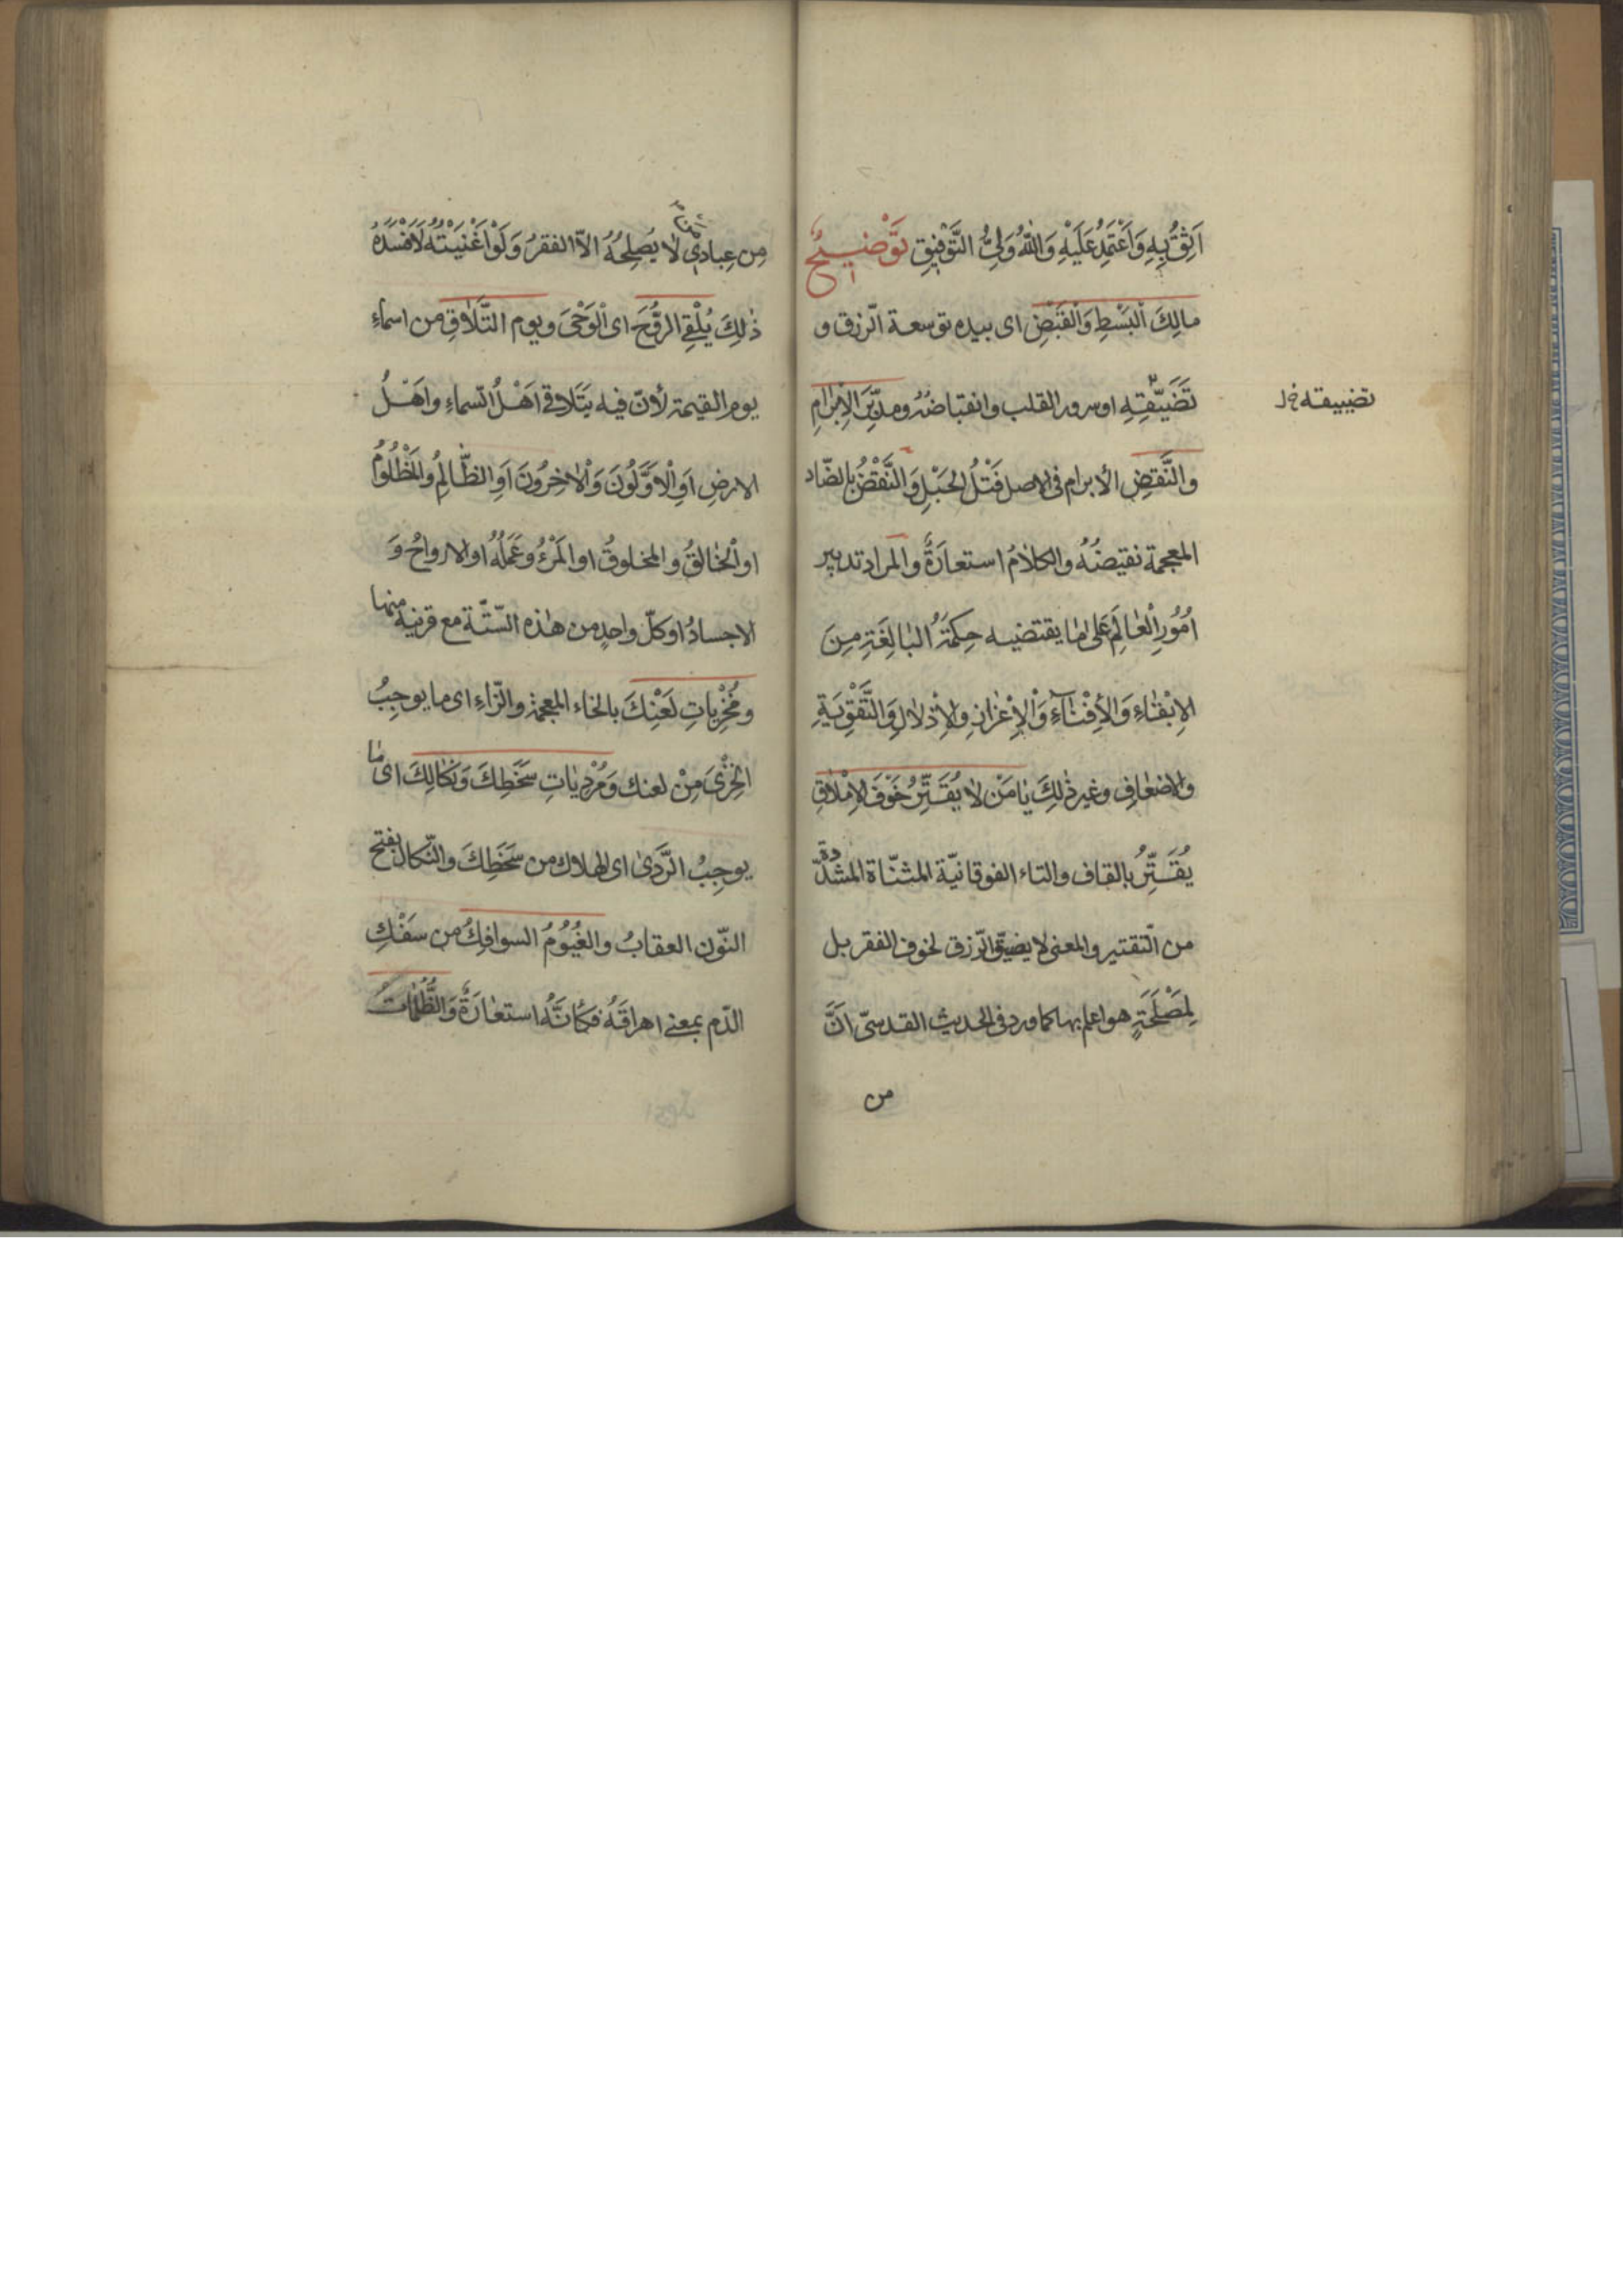 اَثِقُ بِهِ وَاَعْتَمِدُ عَلَيْهِ وَاللّٰهُ وَلِىُّ التَّوْفِيقِ تَوْضِيحٌ
مالِكَ الْبَسْطِ وَالْقَبْضِ اى بيده توسعة الرّزق و
تَضَيّقِهِ او سرور القلب وانقباضُهُ ومدبِّرَ الْاِبْرٰامِ
تضييقه خ ل
والنَّقضِ الأبرام فى الاصل فَتْلُ الحَبْلِ وَالنَّقْضُ بالضّاد
المعجمة نقيضُهُ والكلامُ استعارَةٌ والمراد تدبير
اُمُورِ الْعٰالَمِ عَلىٰ مٰا يقتضيه حِكمَتُهُ الْبٰالِغَةِ مِنَ
الاِبْقٰاءِ وَالْأِفْنٰاءِ وَالْاِعْزازِ والاِذْلالِ وَالتَّقْوِيَةِ
والاضعٰافِ وغير ذٰلِكَ يٰا مَنْ لٰا يُقَتِّرُ خَوْفَ الاِمْلٰاقِ
يُقَتِّرُ بالقاف والتاء الفوقانيّة المثنّاة المشدّدة
من التّقتير والمعنى لا يضيق الرّزق لخوف الفقر بل
لِمَصْلَحَةٍ هو اعلم بها كما ورد فى الحديث القدسىّ اَنَّ
من
مِن عِبادِى لٰا يُصلِحُهُ الاّ الفقرُ وَلَوْ اَغْنَيْتُهُ لَاَفْسَدَهُ
ذٰلِكَ يُلْقِى الرُّوحَ اى الْوَحْىَ ويوم التَّلٰاقِ من اسماءِ
يوم القيٰمة لأنّ فيه يَتَلاقى اَهْلُ السّماءِ واَهْلُ
الارضِ اَوِ الْاَوَّلُونَ وَالْاٰخِرُونَ اَوِ الظّٰالِمُ والمَظْلُومُ
او الْخٰالقُ والمخلوقُ او المَرْءُ وعَمَلُهُ او الارواحُ وَ
الاجسادُ او كلّ واحدٍ من هٰذه السّتّة مع قرينه منها
ومُخْزِياتِ لَعْنِكَ بالخاء المعجمة والزّاءِ اى ما يوجِبُ
الخِزْىَ مِنْ لعنك وَمُرْدِيٰاتِ سَخَطِكَ وَنَكٰالِكَ اى مٰا
يوجِبُ الرَّدىٰ اى الهلاك من سَخَطِكَ والنّكال بفتح
النّون العقابُ والغُيُومُ السوافِكُ من سَفْكِ
الدّم بمعنى اهراقَهُ فَكَأنَّهُ استعٰارَةٌ وَالظُّلُمٰاتُ